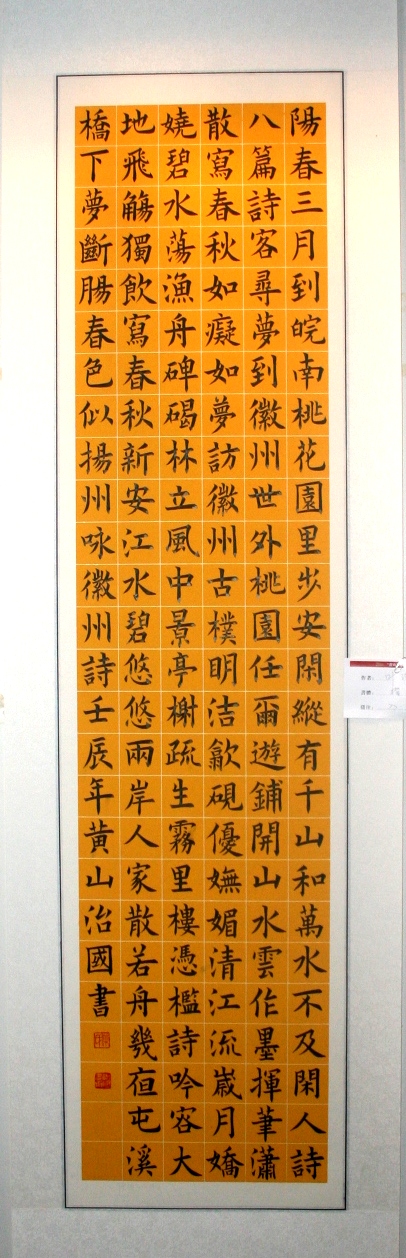 陽春三月到皖南桃花園里步安閑縱有千山和萬水不及閑人詩
八篇詩客尋夢到徽州世外桃園任爾遊鋪開山水雲作墨揮筆瀟
散寫春秋如癡如夢訪徽州古樸明洁歙硯優嫵媚清江流嵗月嬌
嬈碧水蕩漁舟碑碣林立風中景亭榭疏生霧里樓憑檻詩吟客大
地飛觴獨飲寫春秋新安江水碧悠悠兩岸人家散若舟幾亱屯溪
橋下夢斷腸春色似揚州咏徽州詩壬辰年黄山治國書